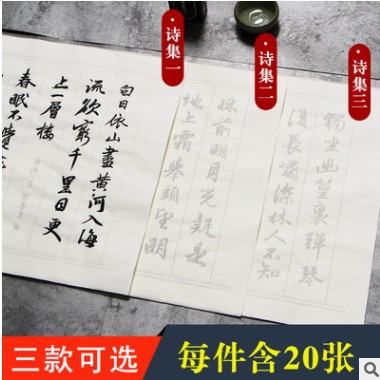 诗集一
诗集二
诗集三
白日依山盡黄河入海
流欲窮千里目更
上一層樓
春眠不覺
牀前明月光疑是
地上霜舉頭望明
獨坐幽篁裏彈琴
復長嘯深林人不知
三款可选
每件含20张